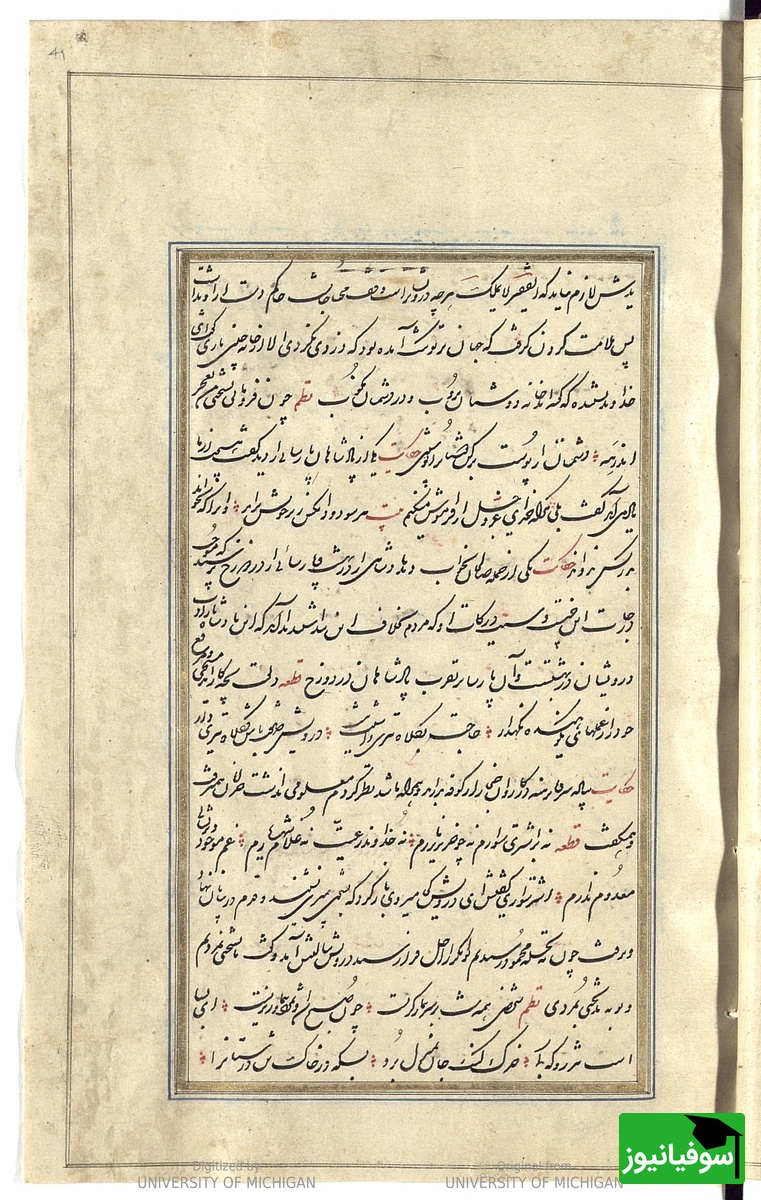 41
یدش لازم نیاید که الفقیر لا یملک هرچه درویشانراست وقف محتاجانست حاکم دست از او بداشت
پس ملامت کردن گرفت که جهان بر تو تنگ آمده بود که دزدی نکردی الا از خانه چنین یاری گفت ای
خداوند نشنیده که گفته‌اند خانه دوستان بروب و در دشمنان مکوب نظم چون فرو مانی بسختی تن بعجز
اندر مده دشمنان را پوست برکن دوستان را پوستین حکایت یکی از پادشاهان پارسایی را دید گفت هیچت از ما
یاد می‌آید گفت بلی هرگه خدای عز و جل را فراموش میکنم بیت هر سو دود آنکش ز بر خویش براند وانرا که بخواند
بدر کس ندواند حکایت یکی از جمله صالحان بخواب دید پادشاهی را در بهشت و پارسائی را در دوزخ پرسید که موجب
درجات این چیست و سبب درکات او که مردم بخلاف این می‌پنداشتند ندا آمد که این پادشاه بارادت
درویشان در بهشتست و آن پارسا بتقرب پادشاهان در دوزخ قطعه دلقت بچه کار آید و تسبیح و مرقع
خود را ز عملهای نکوهیده نگهدار حاجت بکلاه ترکی داشتنت نیست درویش صفت باش و کلاه تتری دار
حکایت پیاده سر و پا برهنه در کاروان حجاز از کوفه برآمد و همراه ما شد نظر کردم معلومی نداشت خرامان همیرفت
و میگفت قطعه نه بر اشتری سوارم نه چو خر بزیر بارم نه خداوند رعیت نه غلام شهریارم غم موجود و پریشانی
معدوم ندارم اشتر سواری گفتش ای درویش کجا میروی بازگرد که بسختی بمیری نشنید و قدم در بیابان نهاد
و برفت چون به نخله محمود رسیدیم توانگر را اجل فرا رسید درویش ببالینش آمد و گفت ما بسختی نمردیم
و تو به بختی بمردی نظم شخصی همه شب بر سر بیمار گریست چون صبح شد او بمرد و بیمار بزیست ای بسا
اسب تیزرو که بماند خرک لنگ جان بمنزل برد بسکه در خاک تن درستانرا
سوفیانیوز
Digitized by
UNIVERSITY OF MICHIGAN
Original from
UNIVERSITY OF MICHIGAN